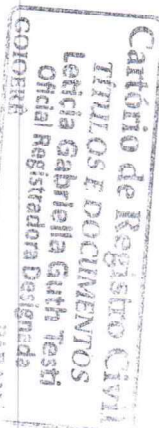 Cartório de Registro Civil
TÍTULOS E DOCUMENTOS
Leticia Gabriella Guth Testi
Oficia Registradora Designada
GOIOERÊ